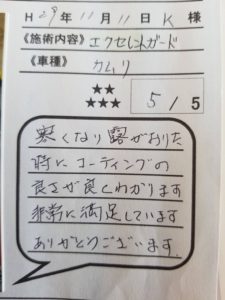 H29年11月11日 K 様
《施術内容》エクセレントガード
《車種》カムリ
★★
★★★
5/5
寒くなり露がおりた
時にコーティングの
良さが良くわかります
非常に満足しています
ありがとうございます。